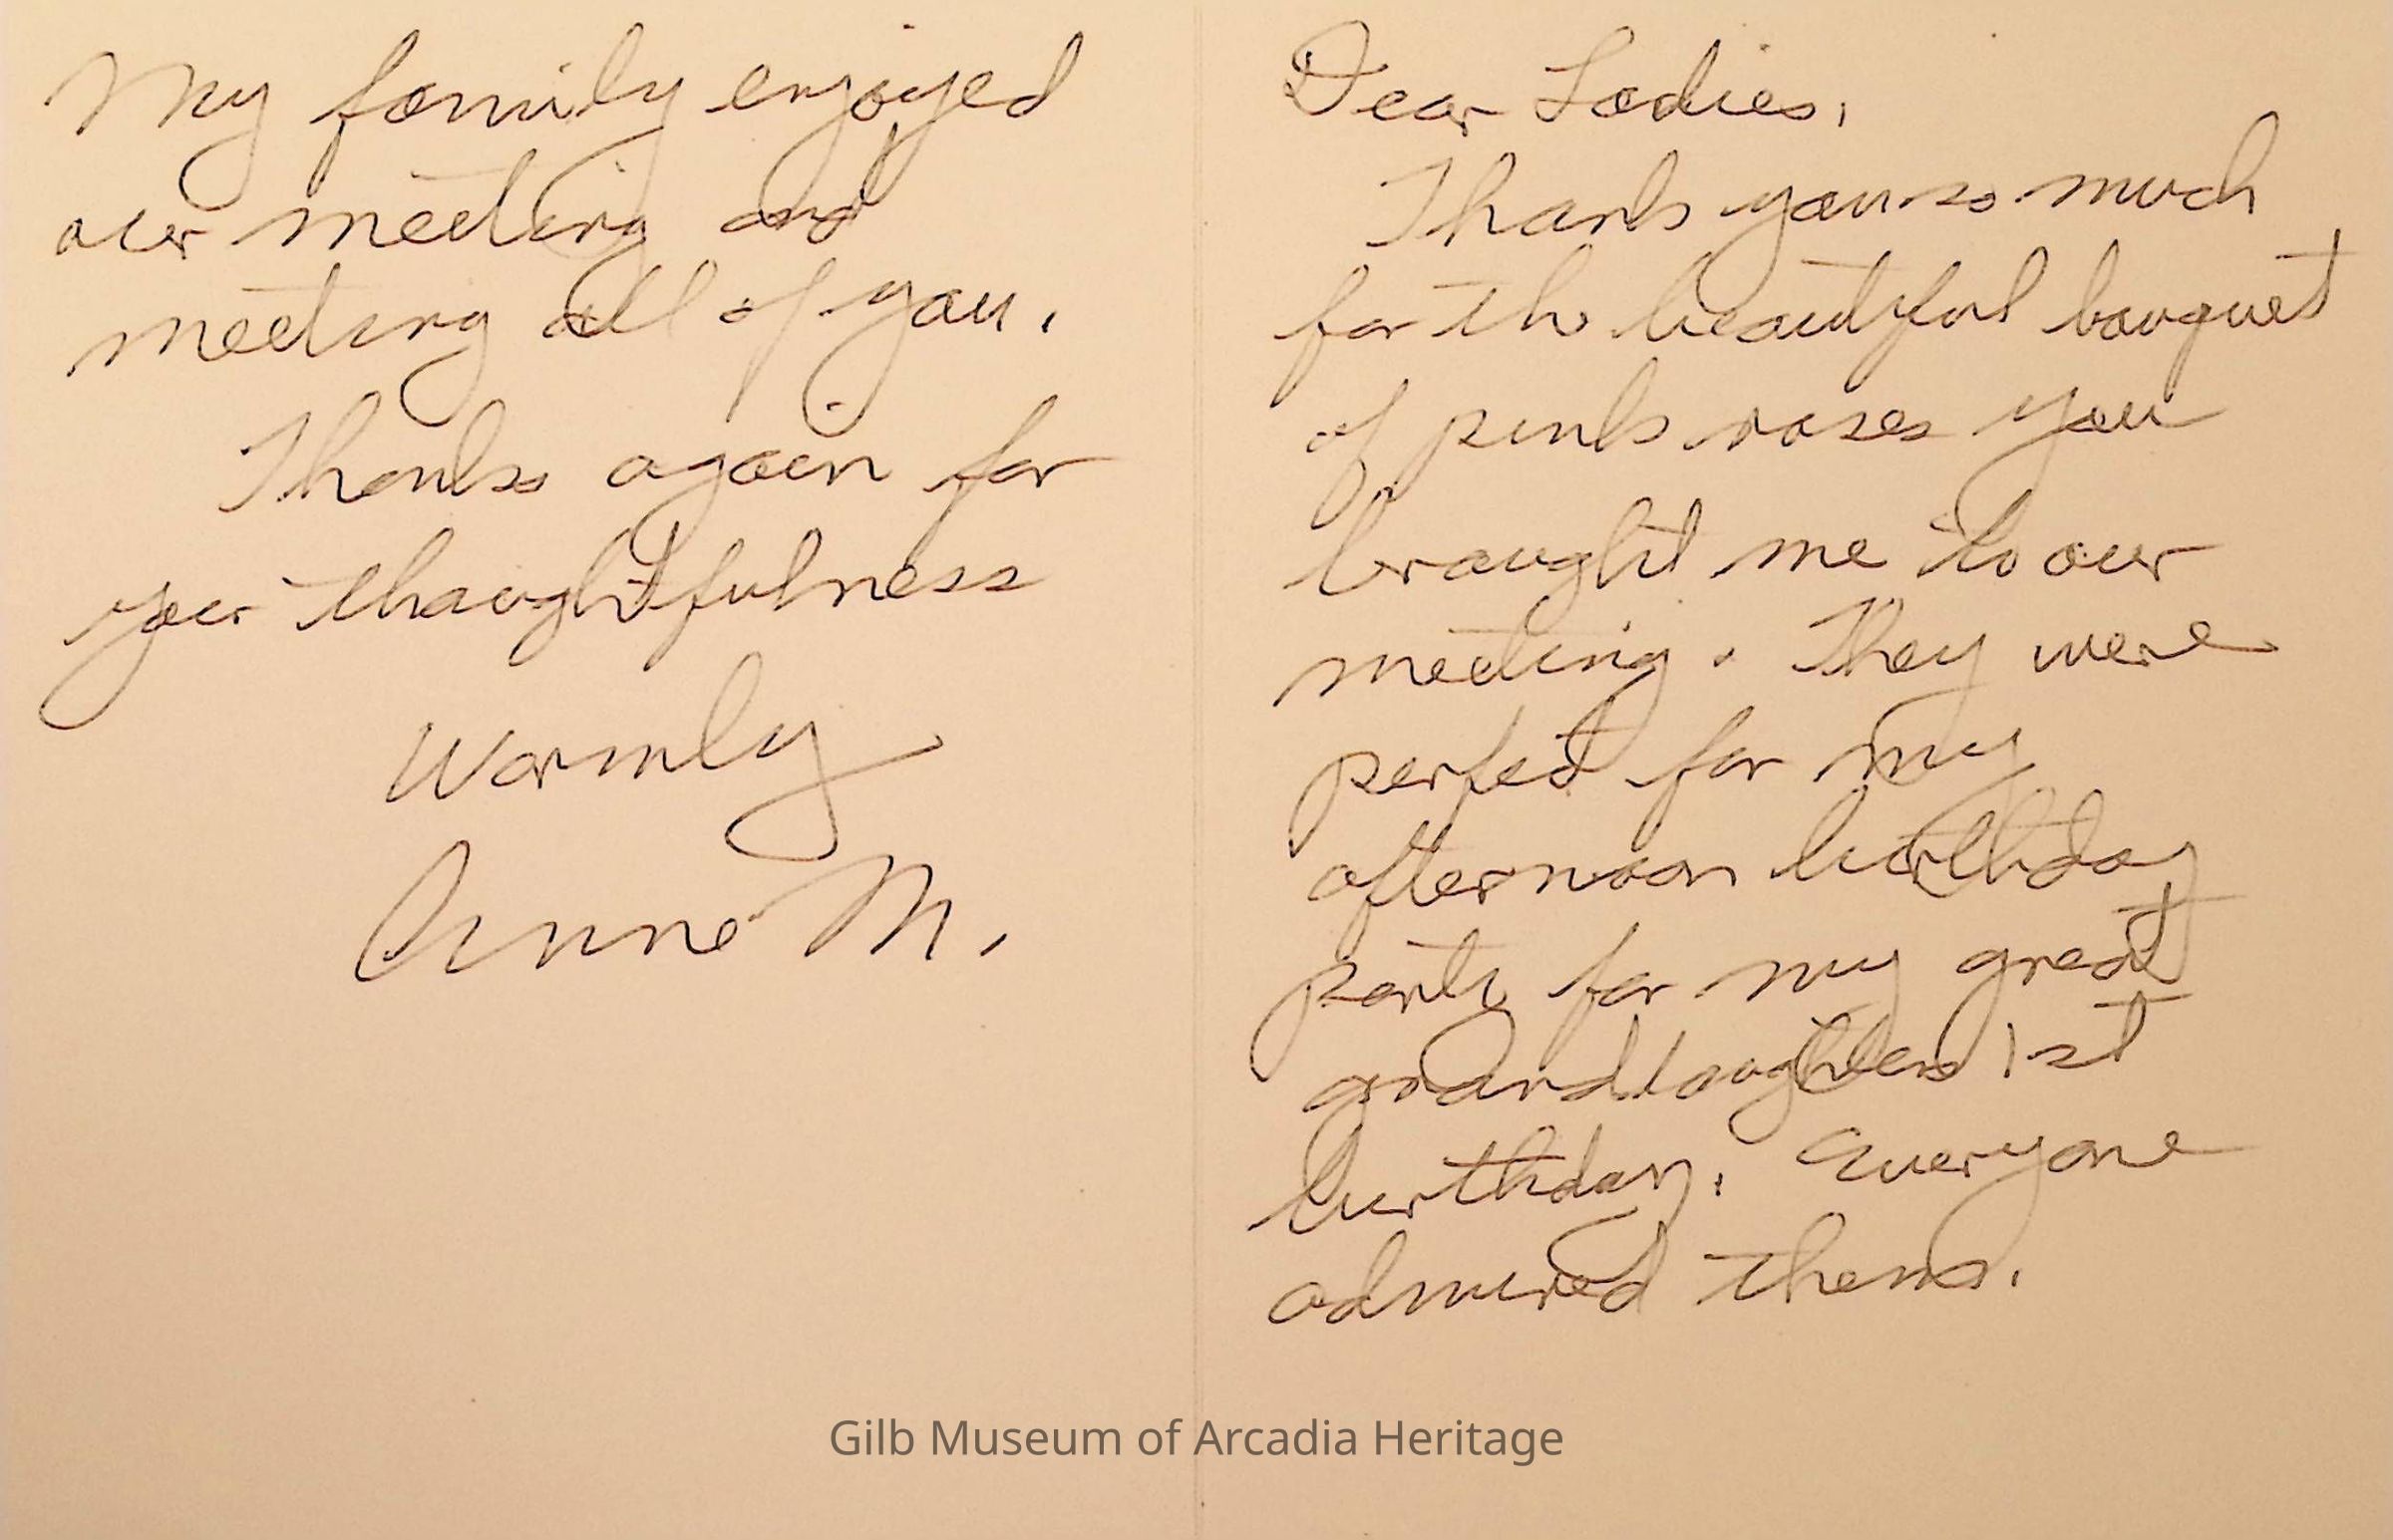 My family enjoyed
our meeting and
meeting all of you.
Thanks again for
your thoughtfulness
Warmly
Anne M.
Dear Ladies,
Thank you so much
for the beautiful bouquet
of pink roses you
brought me to our
meeting. They were
perfect for my
afternoon birthday
party for my great
granddaughters 1st
birthday. Everyone
admired them.
Gilb Museum of Arcadia Heritage